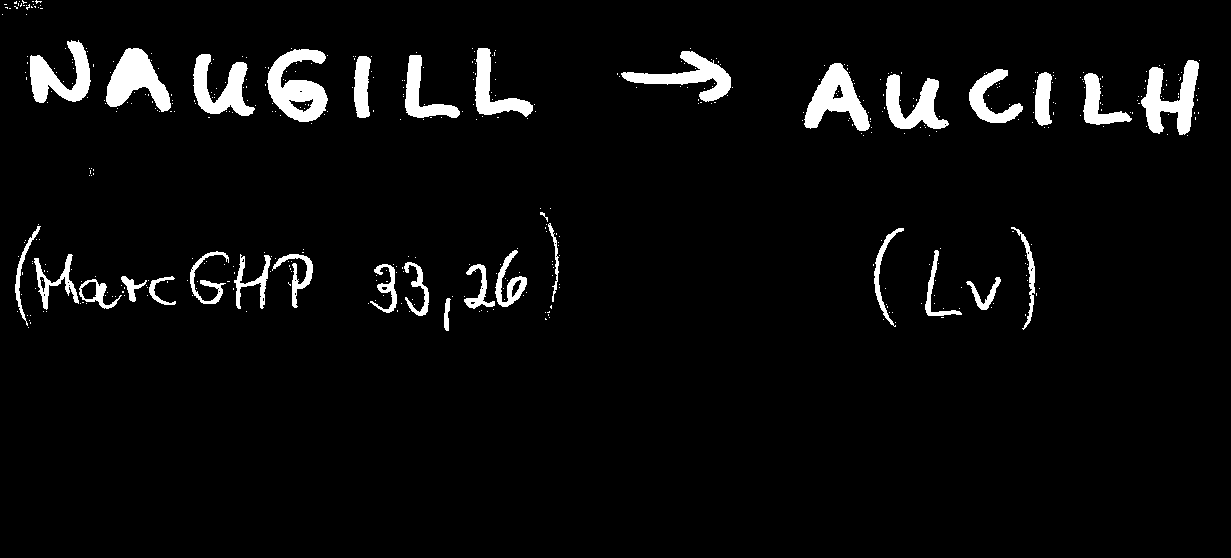 NAUGILL → AUCILH
(MarcGHP 33,26) (Lv)